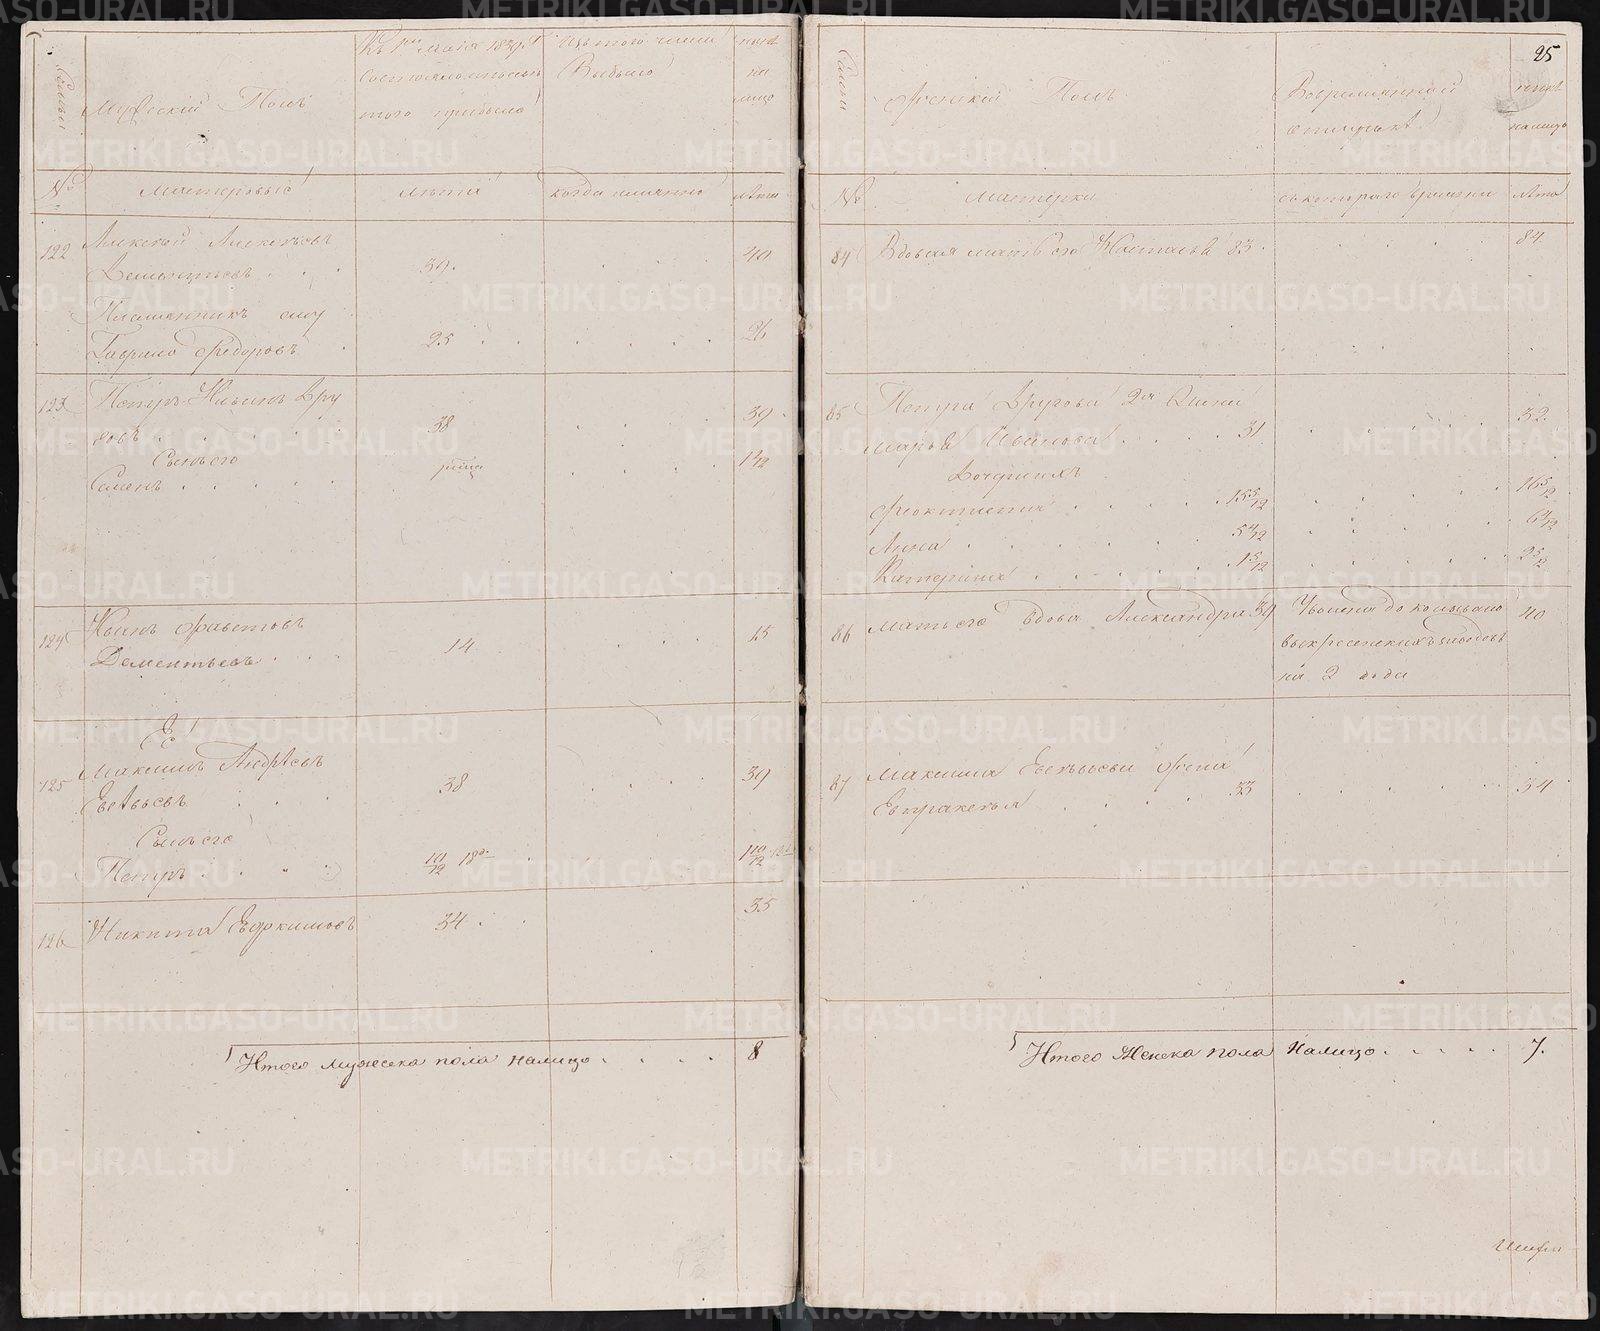 Семьи
Мужескій Полъ
Къ 1му Маія 1839 г
состояло и после
того прибыло
Изъ того числа
Выбыло
ныне
на
лицо
№
мастеровые
лета
когда имянно
лета
122
Алексей Алексеевъ
Дементьевъ
39
40
Племянникъ ему
Гаврило Федоровъ
25
26
123
Петръ Ивановъ Дру
говъ
38
39
Сынъ его
Семенъ
1 1/12
124
Иванъ Фавстовъ
Дементьевъ
14
15
Ее
125
Максимъ Андреевъ
Евсевьевъ
38
39
Сынъ его
Петръ
10/12 18д.
1 10/12
126
Никита Евфимовъ
34
35
Итого мужеска пола налицо
8
25
Семьи
Женскій Полъ
Во временной
отлучке
ныне
налицо
№
мастерки
съ котораго времени
лета
84
Вдовая мать его Настасья 83
84
85
Петра Другова 2я Жена
Марья Иванова 31
32
Дочери ихъ
Феоктиста 15 5/12
16 5/12
Анна 5 4/12
6 4/12
Катерина 1 5/12
2 5/12
86
Мать его вдова Александра 39
Уволена до
Воскресенскихъ заводовъ
на 2 года
40
87
Максима Евсевьева Жена
Евпраксья 33
34
Итого Женска пола налицо
7.